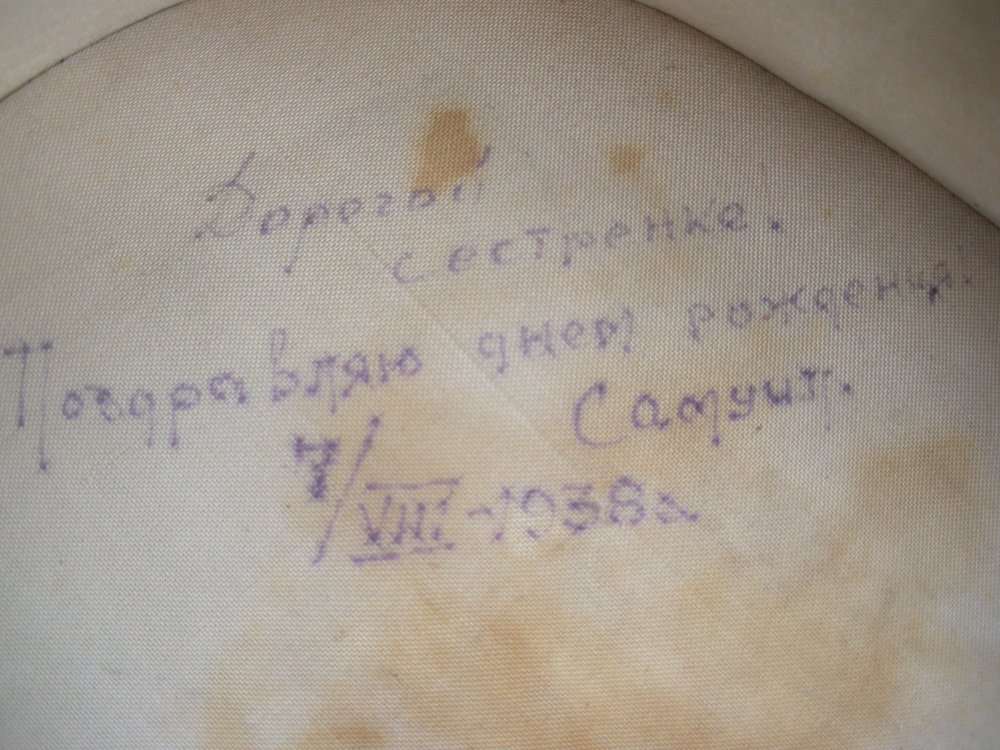 Дорогой
сестренке.
Поздравляю днем рождения!
Самуил.
7/VIII-1938г.